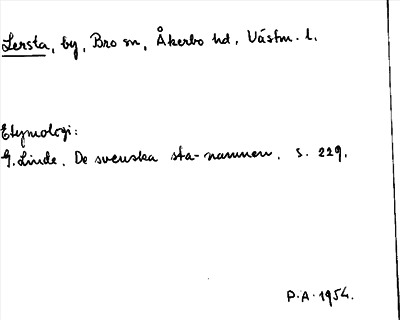 Lersta, by, Bro sn, Åkerbo hd, Västm. l.
Etymologi:
G. Linde. De svenska sta-namnen. s. 229.
P.A. 1954.